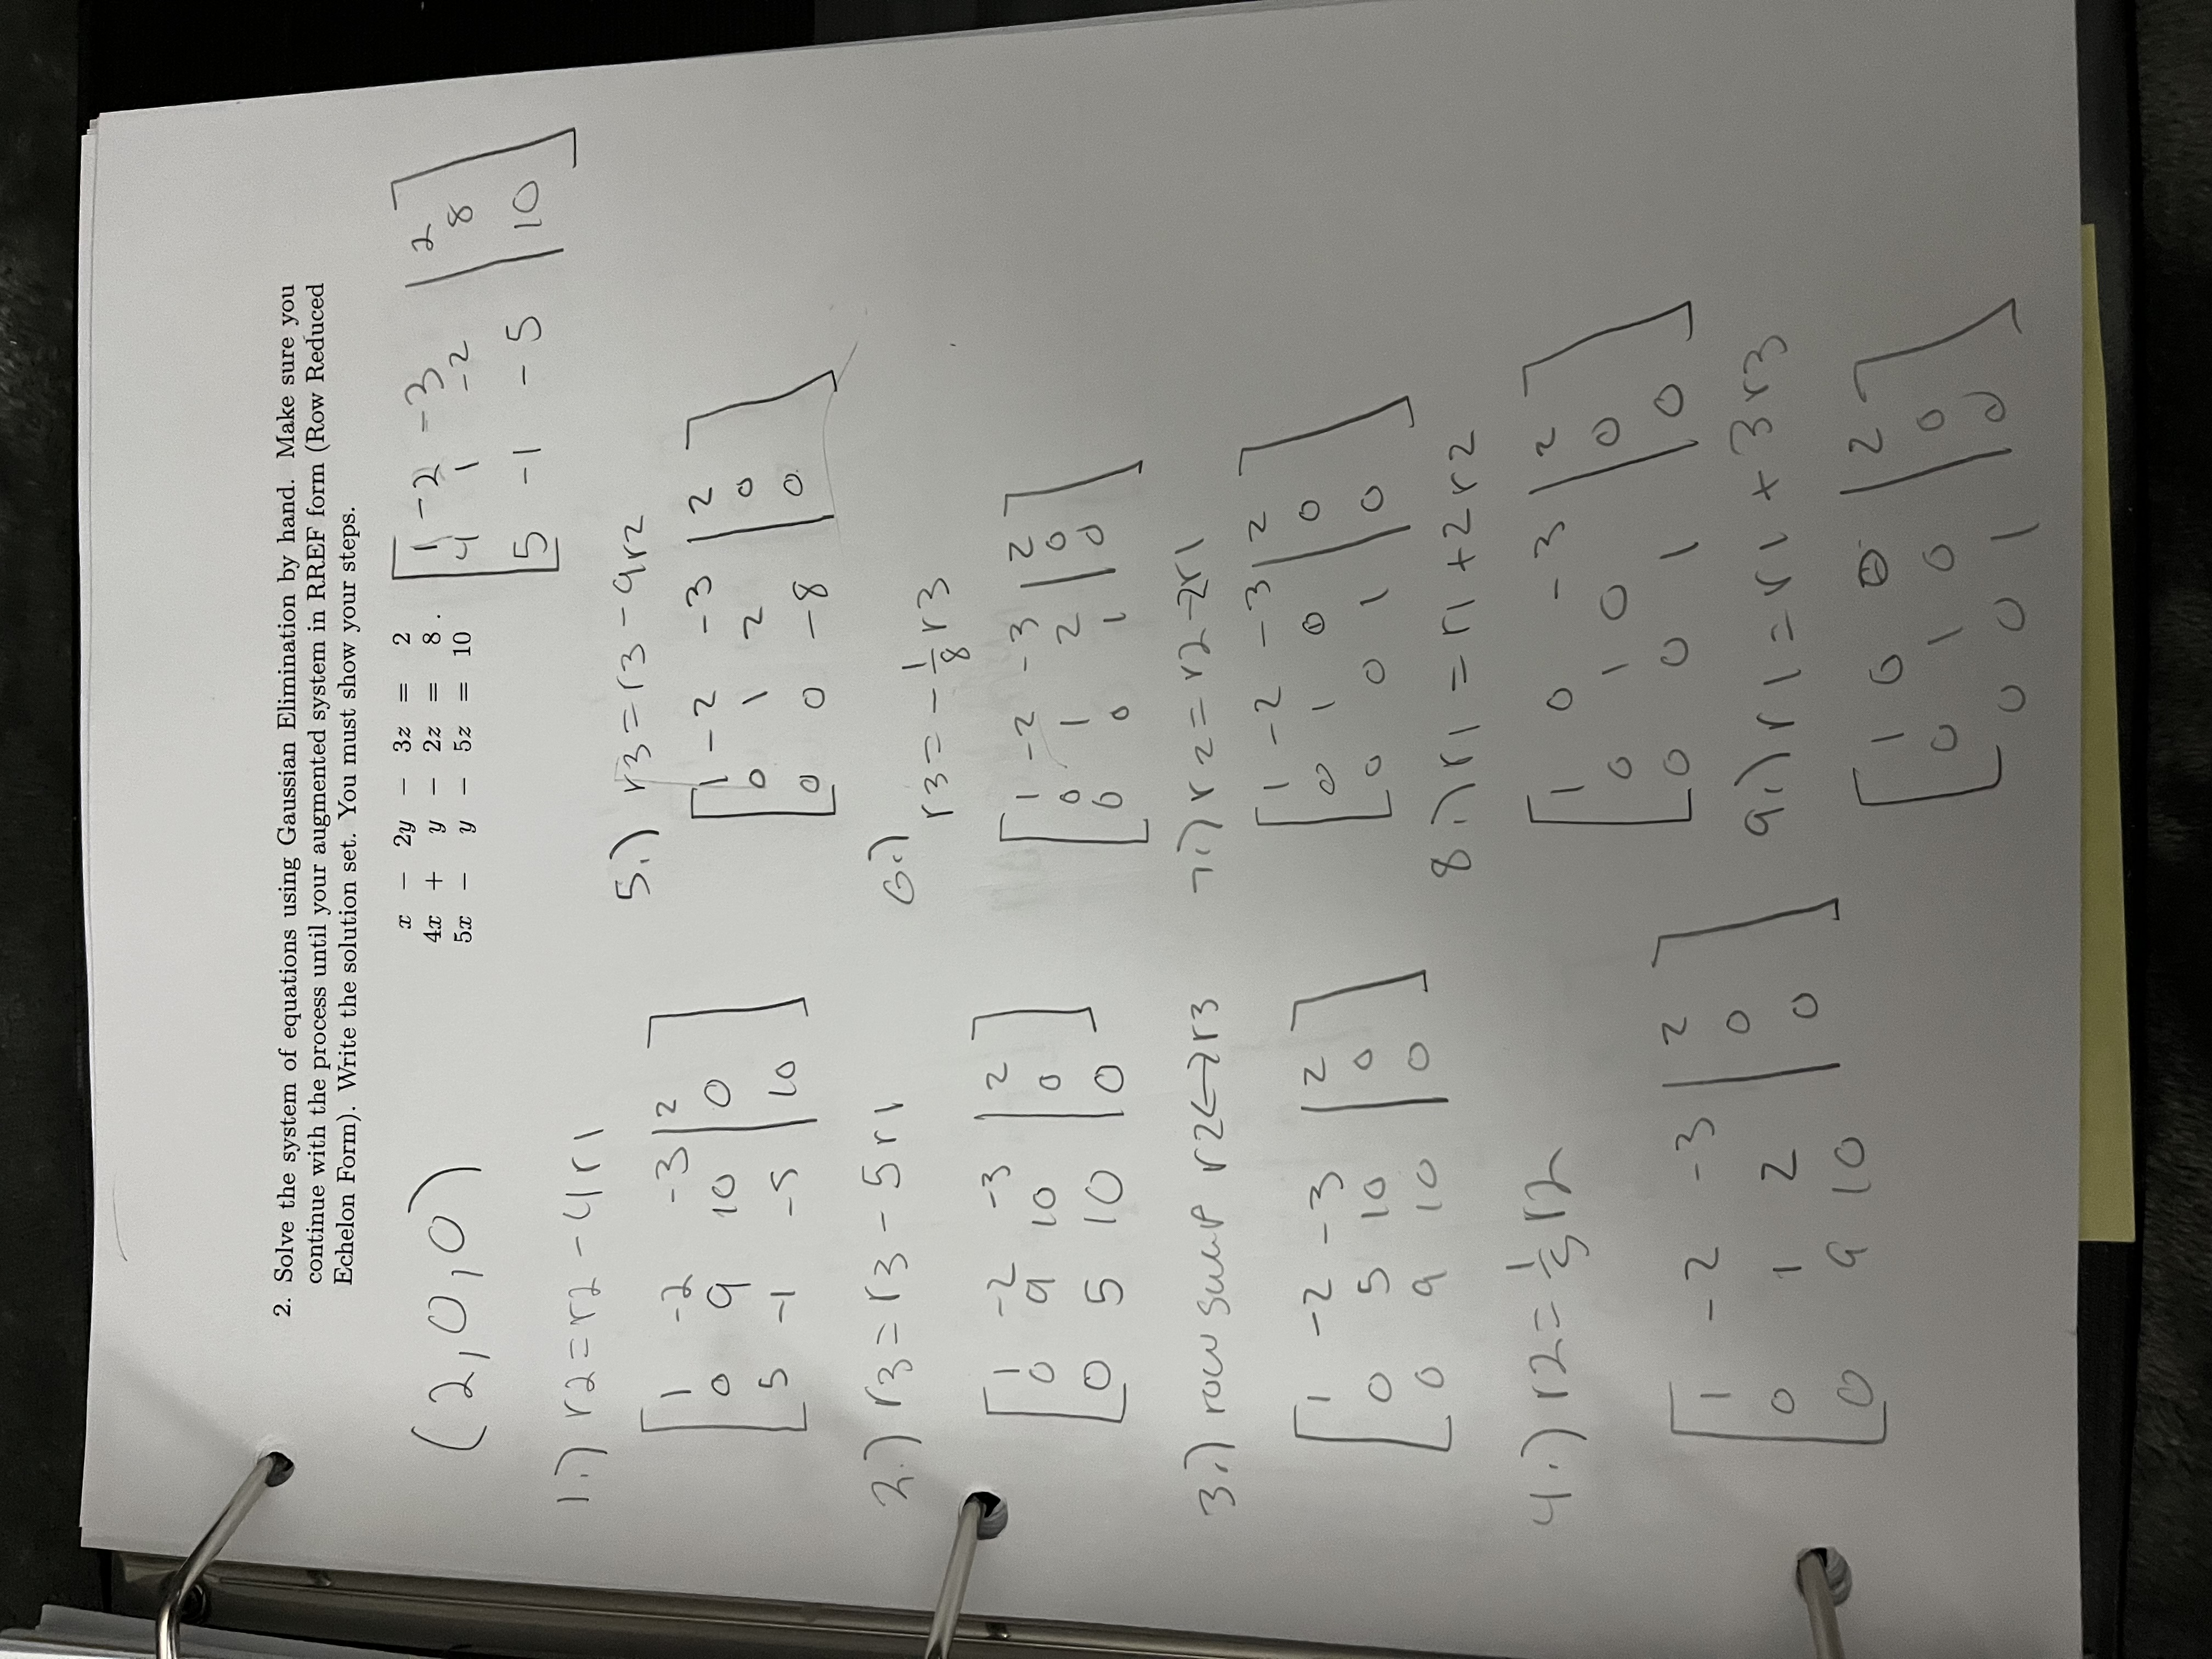 2. Solve the system of equations using Gaussian Elimination by hand. Make sure you
continue with the process until your augmented system in RREF form (Row Reduced
Echelon Form). Write the solution set. You must show your steps.
x − 2y − 3z = 2
4x + y − 2z = 8 .
5x − y − 5z = 10
1 -2 -3 | 2
4 1 -2 | 8
5 -1 -5 | 10
(2,0,0)
1.) r2=r2-4r1
1 -2 -3 | 2
0 9 10 | 0
5 -1 -5 | 10
2.) r3=r3-5r1
1 -2 -3 | 2
0 9 10 | 0
0 5 10 | 0
3.) row swap r2<->r3
1 -2 -3 | 2
0 5 10 | 0
0 9 10 | 0
4.) r2=1/5 r2
1 -2 -3 | 2
0 1 2 | 0
0 9 10 | 0
5.) r3=r3-9r2
1 -2 -3 | 2
0 1 2 | 0
0 0 -8 | 0
6.)
r3=-1/8 r3
1 -2 -3 | 2
0 1 2 | 0
0 0 1 | 0
7.) r2=r2-2r1
1 -2 -3 | 2
0 1 0 | 0
0 0 1 | 0
8.) r1=r1+2r2
1 0 -3 | 2
0 1 0 | 0
0 0 1 | 0
9.) r1=r1+3r3
1 0 0 | 2
0 1 0 | 0
0 0 1 | 0